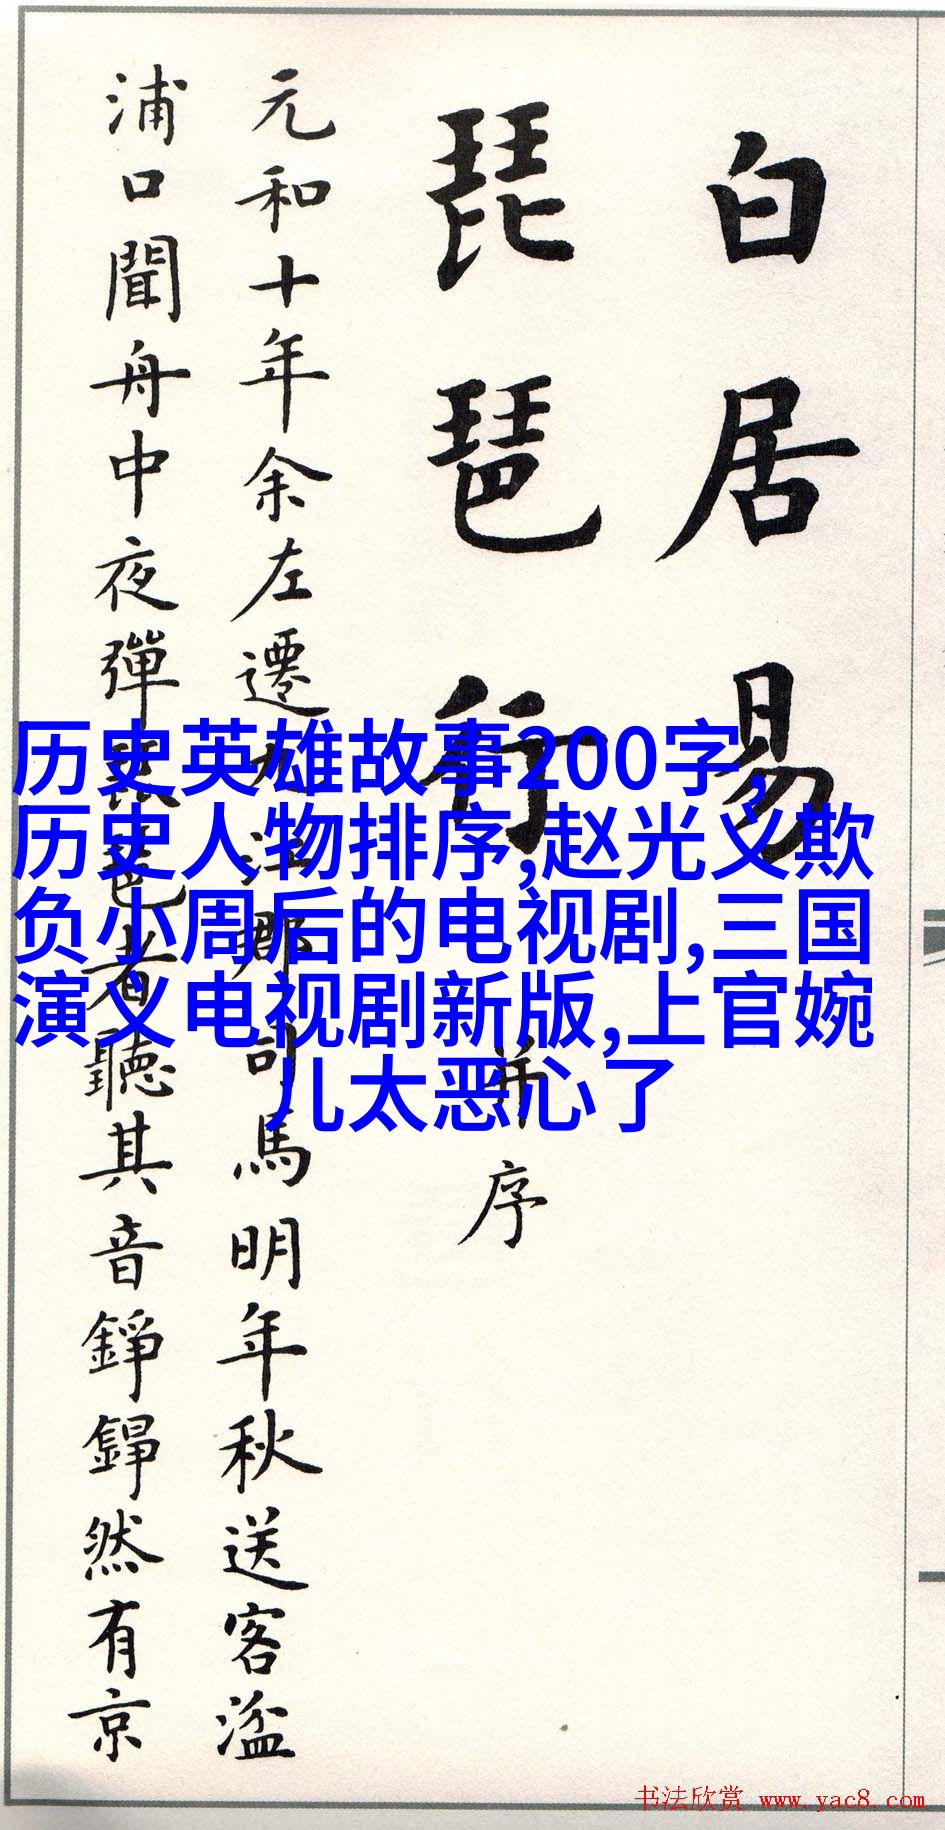 白居易
琵琶行
并序
元和十年余左遷九江郡司馬明年秋送客湓
浦口聞舟中夜彈琵琶者聽其音錚錚然有京
历史英雄故事200字,
历史人物排序,赵光义欺
负小周后的电视剧,三国
演义电视剧新版,上官婉
儿太恶心了
书法欣赏 www.yac8.com